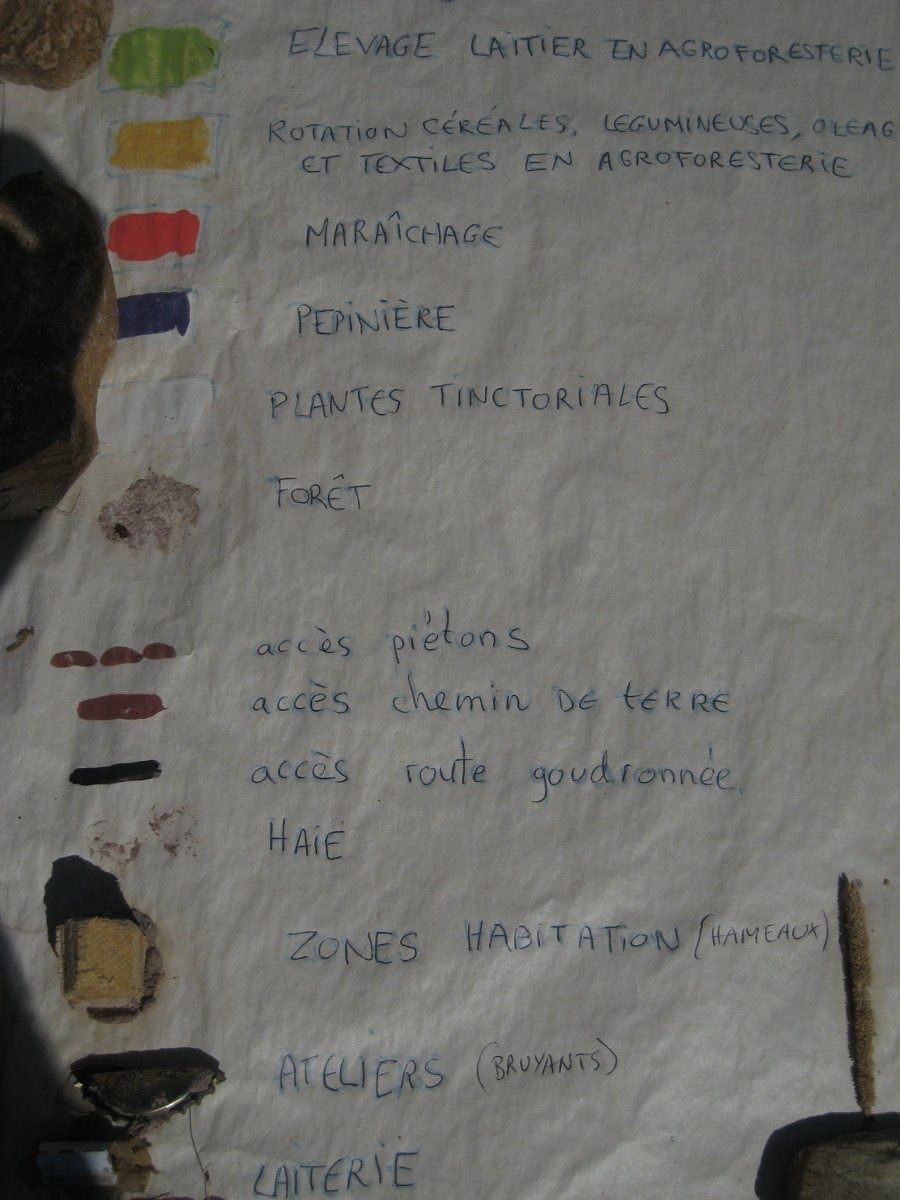 ELEVAGE LAITIER EN AGROFORESTERIE
ROTATION CÉRÉALES, LEGUMINEUSES, OLEAG
ET TEXTILES EN AGROFORESTERIE
MARAÎCHAGE
PEPINIÈRE
PLANTES TINCTORIALES
FORÊT
accès piétons
accès chemin DE tERRE
accès route goudronnée
HAIE
ZONES HABITATION (HAMEAUX)
ATELIERS (BRUYANTS)
LAITERIE